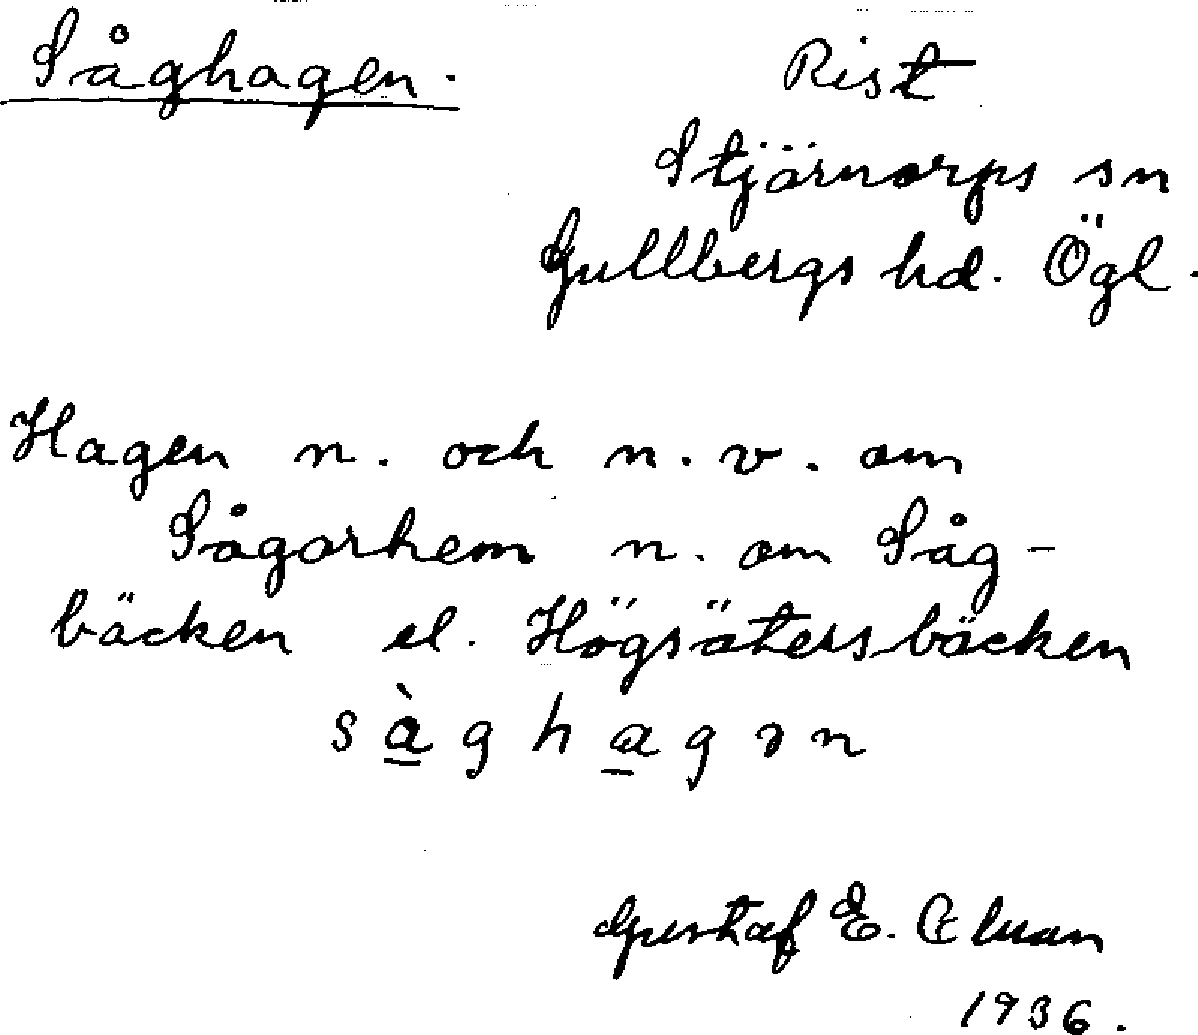 Såghagen.
Rist
Stjärnorps sn
Gullbergs hd. Ögl.
Hagen n. och n. v. om
Sågarhem n. om Såg-
bäcken el. Högsätersbäcken
sàghagən
Gustaf E.
1936.